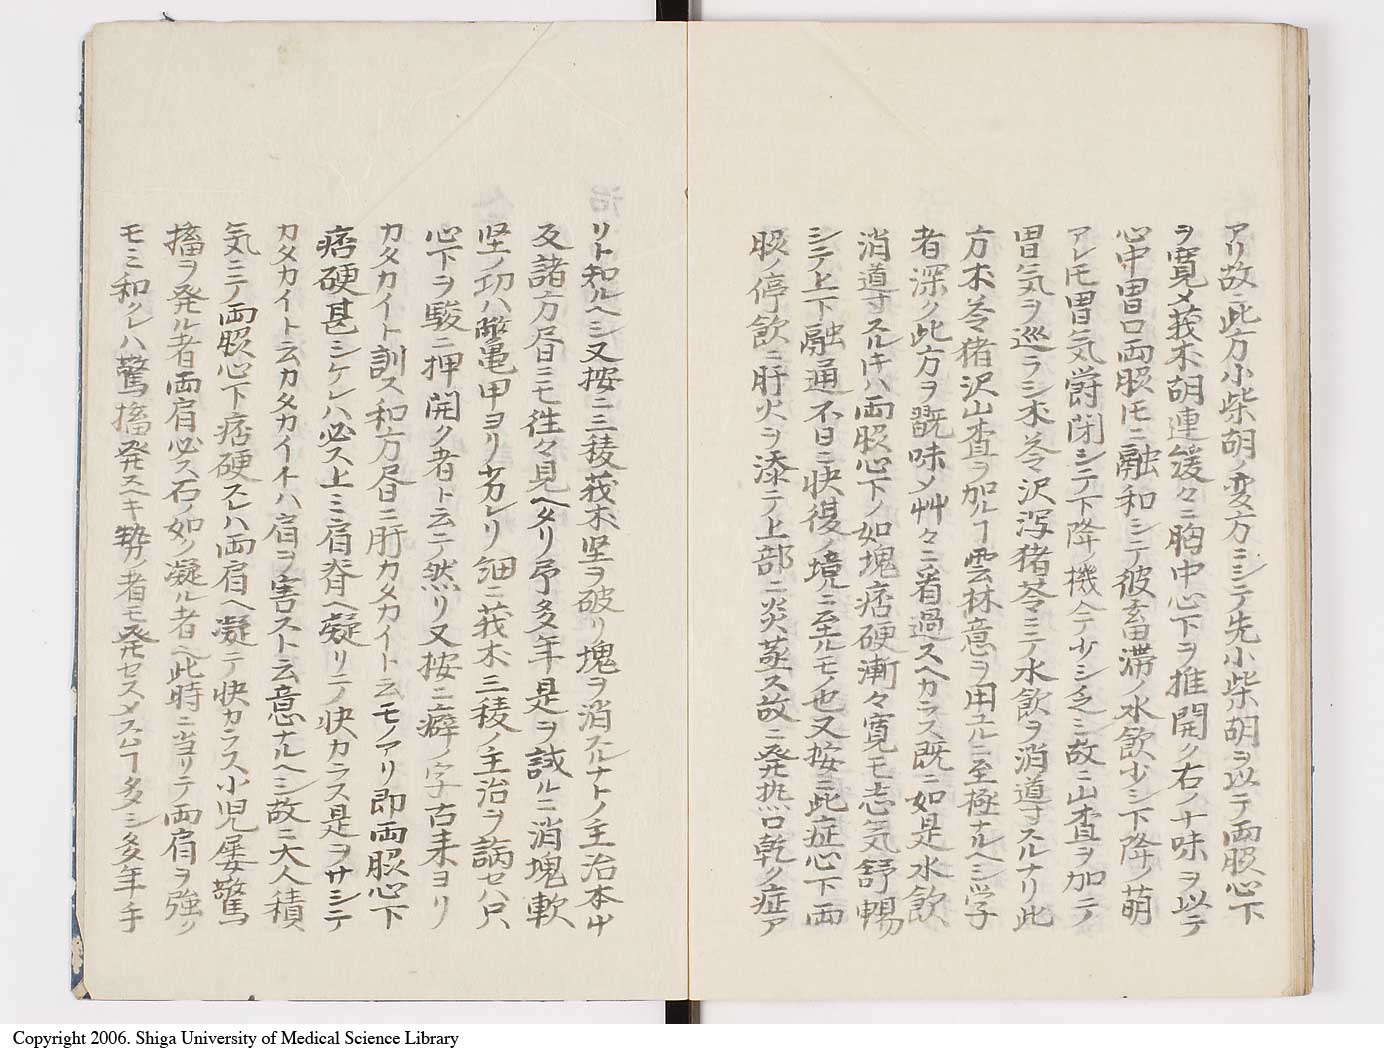 アリ故ニ此方小柴胡ノ変方ニシテ先小柴胡ヲ以テ両脇心下
ヲ寛メ莪朮胡連緩々ニ胸中心下ヲ推開ク右ノ十味ヲ以テ
心中胃口両脇圧ニ融和シテ彼畜滞ノ水飲少シ下降ノ萌
アレ圧胃気欝閉シテ下降ノ機今少シ乏シ故ニ山査ヲ加ニテ
胃気ヲ巡ラシ朮苓沢瀉猪苓ニテ水飲ヲ消導スルナリ此
方朮苓猪沢山査ヲ加ルヿ雲林意ヲ用ユルニ至極ナルヘシ学
者深ク此方ヲ翫味メ艸々ニ看過スヘカラス既ニ如是水飲
消導スルキハ両脇心下ノ如塊痞硬漸々寛モ志気舒暢
シテ上下融通不日ニ快復ノ境ニ至ルモ也又按ニ此症心下両
脇ノ停飲ニ肝火ヲ添テ上部ニ炎蒸ス故ニ発熱口乾ク症ア
リト知ルヘシ又按ニ三稜莪朮堅ヲ破リ塊ヲ消スルナトノ主治本艸
及諸方尽日ニモ往々見ヘタリ予多年是ヲ試ルニ消塊軟
堅ノ功ハ鼈甲ヨリ劣レリ細ニ莪朮三稜ノ主治ヲ論セハ只
心下ヲ駿ニ押開ク者ト云テ然リ又按ニ癖ノ字古来ヨリ
カタカイト訓ス和方尽日ニ肝カタカイト云モノアリ即両脇心下
痞硬甚シケレハ必ス上ミ肩脊ヘ凝リテ快カラス是ヲサシテ
カタカイト云カタカイキハ肩ヲ害スト云意ナルヘシ故ニ大人積
気ニテ両脇心下痞硬スレハ両肩ヘ凝テ快カラス小児屡驚
搐ヲ発ル者両肩必ス石ノ如ク凝ル者ヘ此時ニ当リテ両肩ヲ強ク
モミ和クレハ驚搐発スヘキ勢ノ者モ発セスメスムヿ多シ多年手